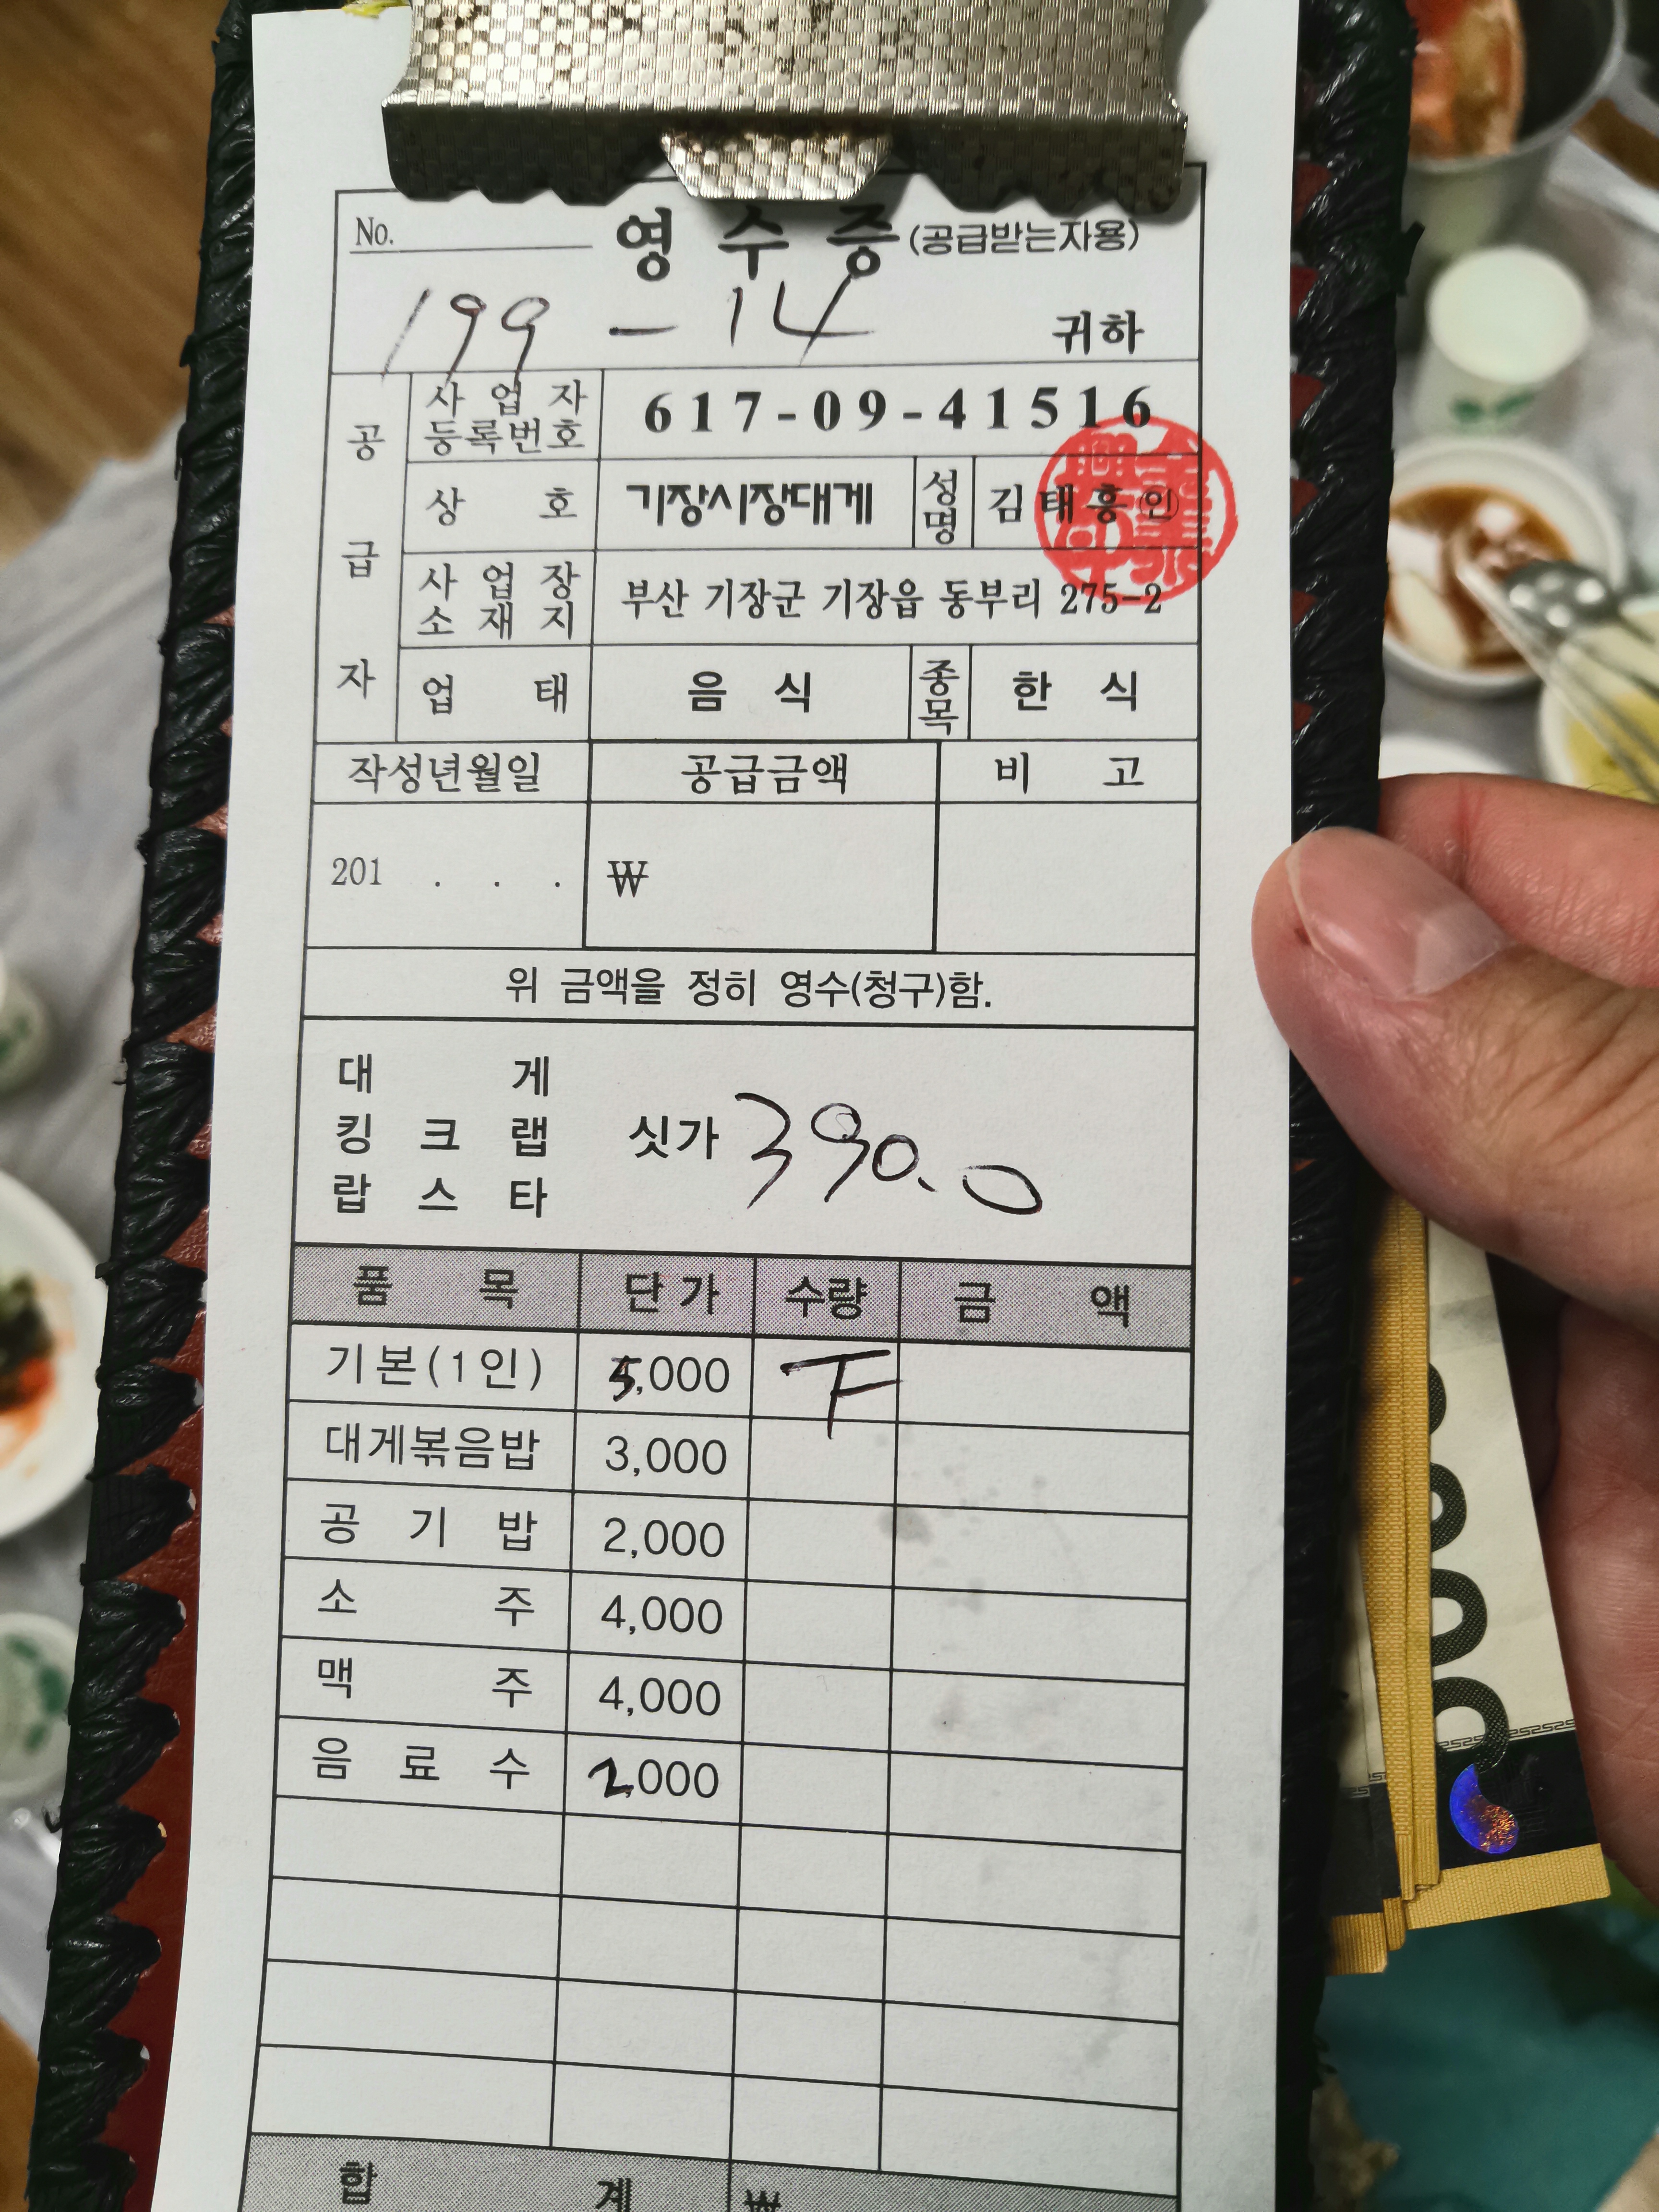 No. 영수증 (공급받는자용)
199 - 14 귀하
공급자
사업자등록번호 617-09-41516
상호 기장시장대게 성명 김태흥 인
사업장소재지 부산 기장군 기장읍 동부리 275-2
업태 음식 종목 한식
작성년월일 공급금액 비고
201 . . . ₩
위 금액을 정히 영수(청구)함.
대게
킹크랩 싯가 390.0
랍스타
품목 단가 수량 금액
기본(1인) 5,000
대게볶음밥 3,000
공기밥 2,000
소주 4,000
맥주 4,000
음료수 2,000
합계 ₩